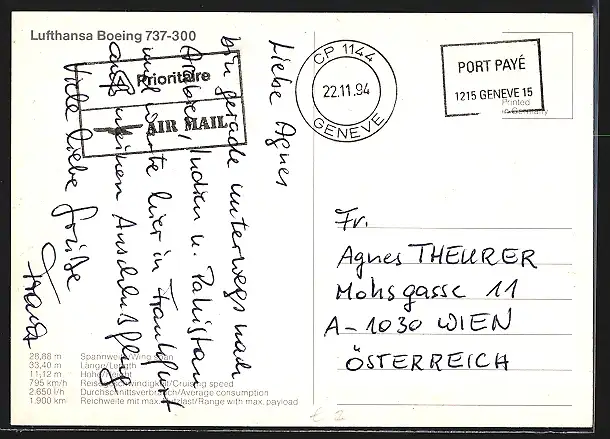 Lufthansa Boeing 737-300
Liebe Agnes
bin gerade unterwegs nach
Indien u. Pakistan
und warte hier in Frankfurt
auf meinen Anschlussflug
Viele liebe Grüße
Franz
A Prioritaire
AIR MAIL
CP 1144
22.11.94
GENEVE
PORT PAYÉ
1215 GENEVE 15
Printed
in Germany
Fr.
Agnes THEURER
Mohsgasse 11
A-1030 WIEN
ÖSTERREICH
28,88 m Spannweite/Wing span
33,40 m Länge/Length
11,12 m Höhe/Height
795 km/h Reisegeschwindigkeit/Cruising speed
2.650 l/h Durchschnittsverbrauch/Average consumption
1.900 km Reichweite mit max. Nutzlast/Range with max. payload